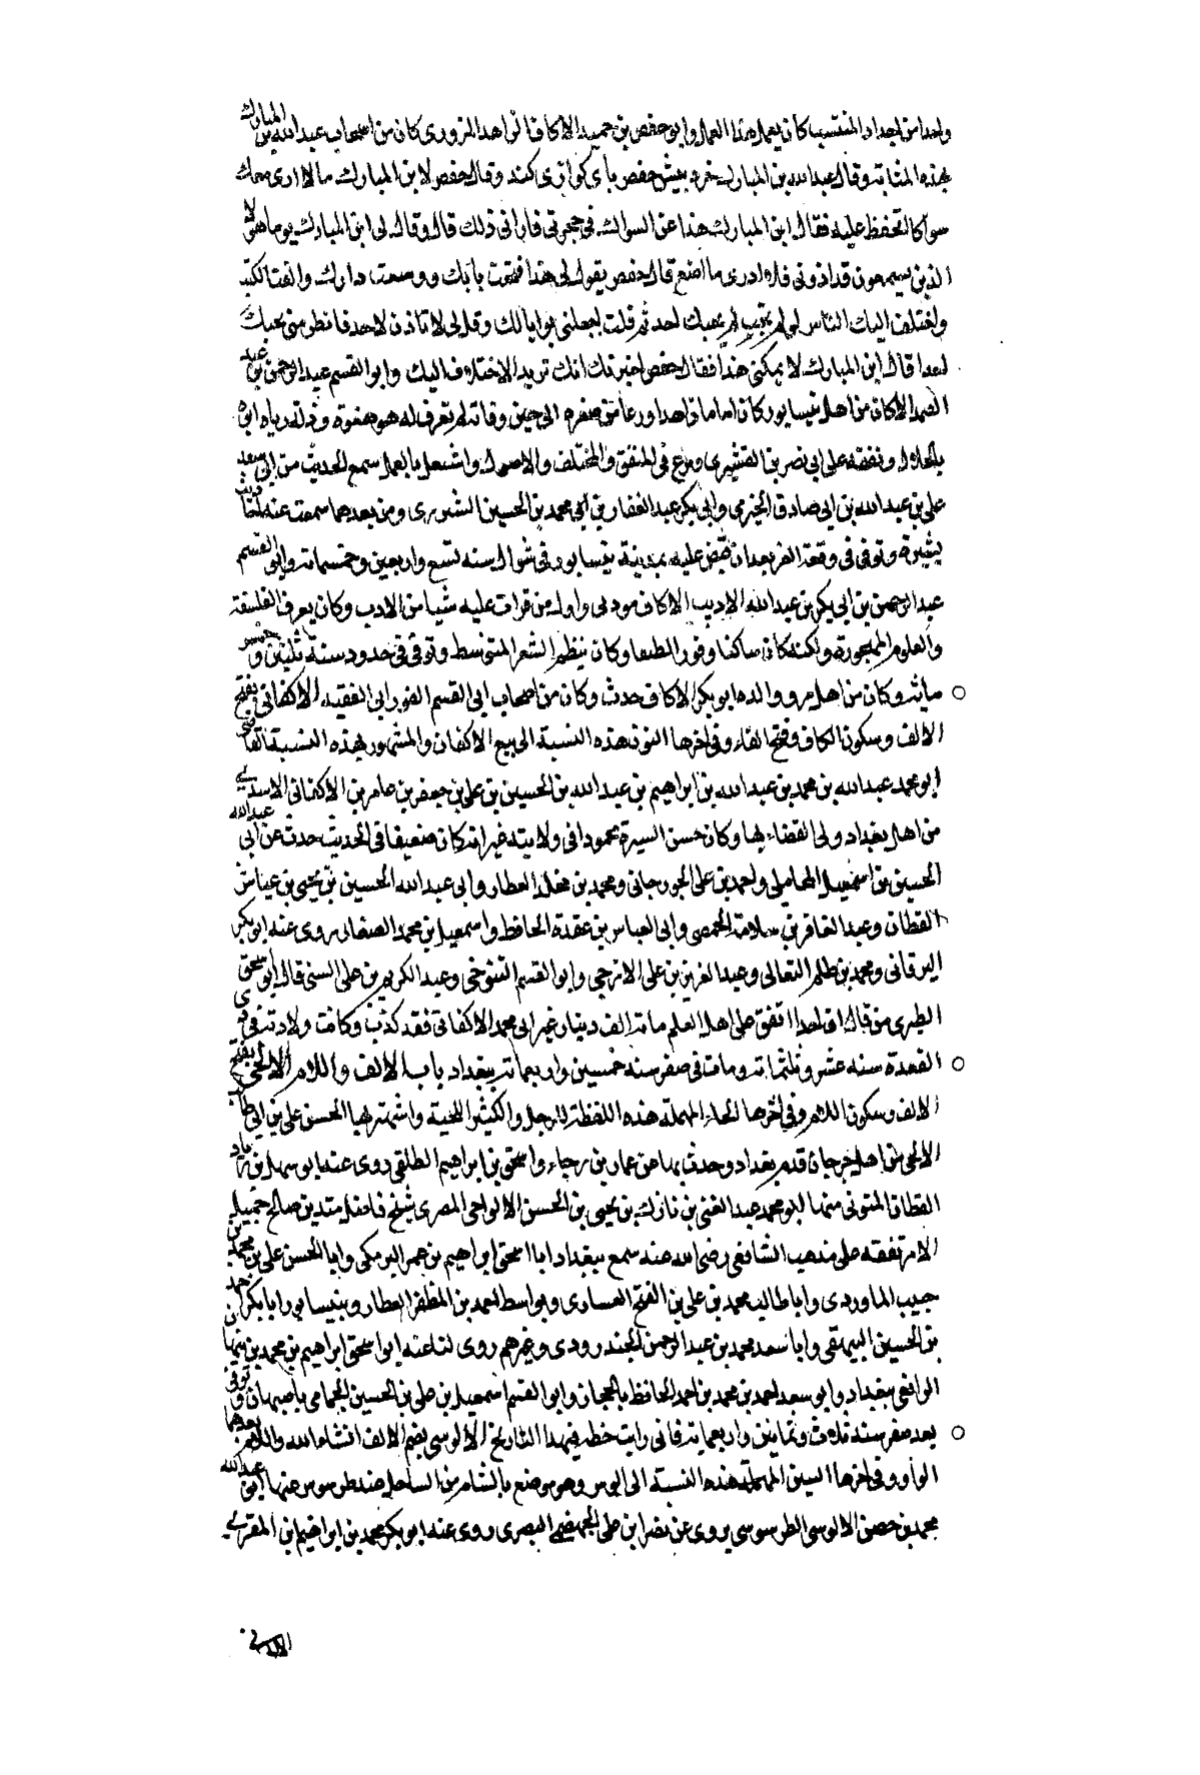 واحدا من اجداد المنتسب كان يعمل هذا العمل وابو حفص بن حميد الاكاف الزاهد المروزى كان من اصحاب عبدالله بن المبارك
بهذه المثابة وقال عبدالله بن المبارك حفص باى وقال حفص لابن المبارك مالا ارى معك
سواكا تحفظ عليه فقال ابن المبارك هذا عن السواك فى حجرتى فارانى ذلك قال وقال لى ابن المبارك يوما هولا
الذين قد اذونى فلا ادرى ما اصنع قال حفص يقول لى هذا فتحت بابك ووسعت دارك والفت الكتب
واختلف اليك الناس لو لم لم يجبك احد ثم قلت اجعلنى بوابا لك وقل لى لا تاذن لاحد فانظر من يجيك
بعدا قال ابن المبارك لا يمكنى هذا فقال حفص اخبرتك انك تريد الاختلاف اليك وابو القسم عبد الرحمن بن عبد
الصمد الاكاف من اهل نيسابور كان اماما زاهدا ورعا من صغره الى حين وفاته لم تعرف له هفوة وزلة رباه ابوه
بالحلال وتفقه على ابى نصر بن القشيرى وبرع فى المتفق والمختلف والاصول واشتغل بالعمل سمع الحديث من ابى سعد
على بن عبدالله بن ابى صادق الحيرى وابى بكر عبد الغفار بن محمد بن الحسين الشيروى ومن بعدهما سمعت عنه احاديث
يسيرة وتوفى فى وقعة الغز بعد ان قبض عليه بمدينة نيسابور فى شوال سنه تسع واربعين وخمسمائة وابى القسم
عبد الرحمن بن ابى بكر بن عبدالله الاديب الاكاف مودبى واول من قرات عليه شيا من الادب وكان يعرف الفلسفة
والعلوم المهجورة ولكنه كان ساكنا وقورا لطيفا وكان ينظم الشعر المتوسط وتوفى فى حدود سنة ثلثين وخمس
مائة وكان من اهل مرو والده ابو بكر الاكاف حدث وكان من اصحاب ابى القسم الفورانى الفقيه الاكفانى بفتح
الالف وسكون الكاف وفتح الفاء وفى اخرها النون هذه النسبة الى بيع الاكفان والمشهور بهذه النسبة القاضى
ابو محمد عبدالله بن محمد بن عبدالله بن ابراهيم بن عبدالله بن الحسين بن على بن جعفر بن عامر بن الاكفانى الاسدى
من اهل بغداد ولى القضاء بها وكان حسن السيرة محمودا فى ولايته غير انه كان ضعيفا فى الحديث حدث عن ابى عبدالله
الحسين بن اسمعيل المحاملى واحمد بن على الجورجانى ومحمد بن مخلد العطار وابى عبدالله الحسين بن يحيى بن عياش
القطان وعبد الغافر بن سلامة الحمصى وابى العباس بن عقدة الحافظ واسمعيل بن محمد الصفار روى عنه ابو بكر
البرقانى ومحمد بن طلحة النعالى وعبد العزيز بن على الازجى وابو القسم التنوخى وعبد الكريم بن على السنى قال ابو اسحق
الطبرى من قال ان احدا انفق على اهل العلم مائة الف دينار غير ابى محمد الاكفانى فقد كذب وكانت ولادته فى ذى
القعدة سنه عشر وثلثمائة ومات فى صفر سنة خمسين واربعمائة ببغداد باب الالف واللام الالحى بفتح
الالف وسكون اللام وفى اخرها الحاء المهملة هذه اللفظة للرجل والكثير اللحية واشتهر بها الحسن على بن ابى طالب
الالحى من اهل جرجان قدم بغداد وحدث بها عن عمار بن رجاء واسحق بن ابراهيم الطلقى روى عنه ابو سهل بن زياد
القطان المتوثى منها ابو محمد عبد الغنى بن نازك بن يحيى بن الحسن الالواحى المصرى شيخ فاضل متدين صالح جميل
الامر تفقه على مذهب الشافعى رضى الله عنه سمع ببغداد ابا اسحق ابراهيم بن عمر البرمكى وابا الحسن على بن محمد بن
حبيب الماوردى وابا طالب محمد بن على بن الفتح العسارى وبواسط احمد بن المظفر العطار وبنيسابور ابا بكر احمد
بن الحسين البيهقى وابا سعد محمد بن عبد الرحمن الجنزرودى وغيرهم روى لنا عنه ابو اسحق ابراهيم بن محمد بن
ببغداد وابو سعد احمد بن محمد بن احمد الحافظ بالحجاز وابو القسم اسمعيل بن على بن الحسين الحمامى باصبهان وتوفى
بعد صفر سنة ثلاث وثمانين واربعمائة فانى رايت خطه فى هذا التاريخ الالوسى بضم الالف انشاء الله واللام بعدها
الواو وفى اخرها السين المهملة هذه النسبة الى الوس وهو موضع بالشام من الساحل عند طرسوس منها ابو عبدالله
محمد بن حصن الالوسى الطرسوسى يروى عن نصر ابن على الجهضمى البصرى روى عنه ابو بكر محمد بن ابراهيم ابن المقرى